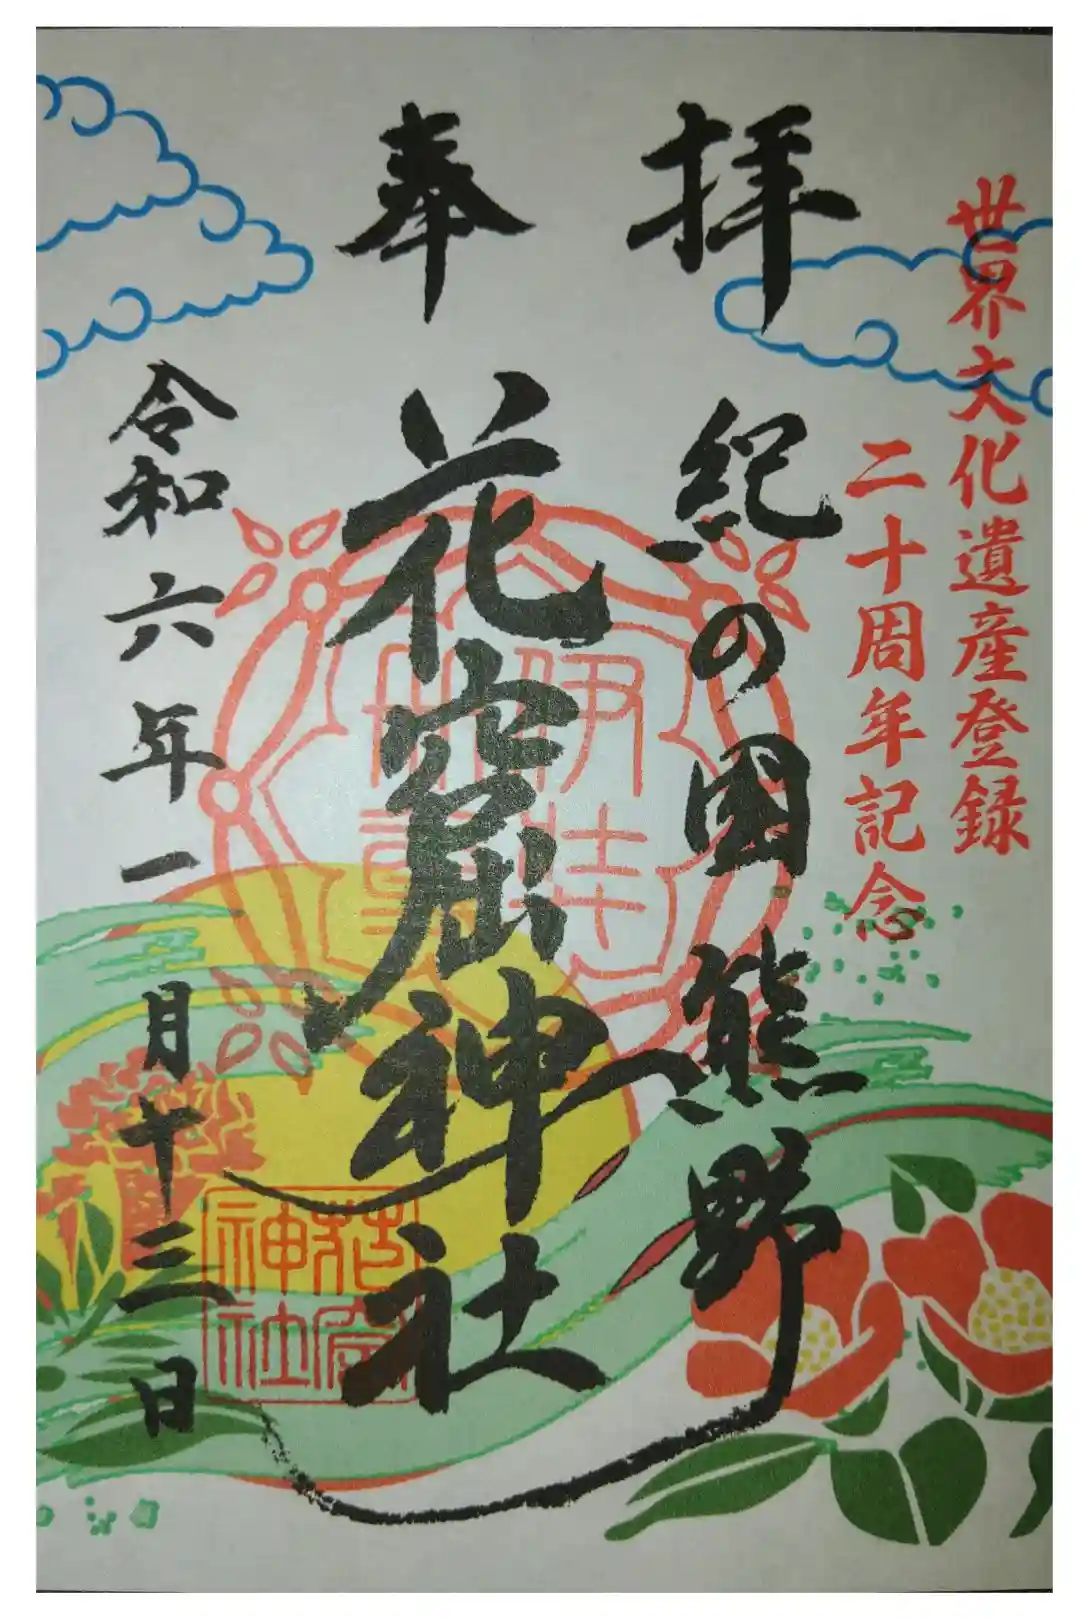 世界文化遺産登録
二十周年記念
奉拝
紀の国熊野
花窟神社
令和六年一月十三日
花窟
神社